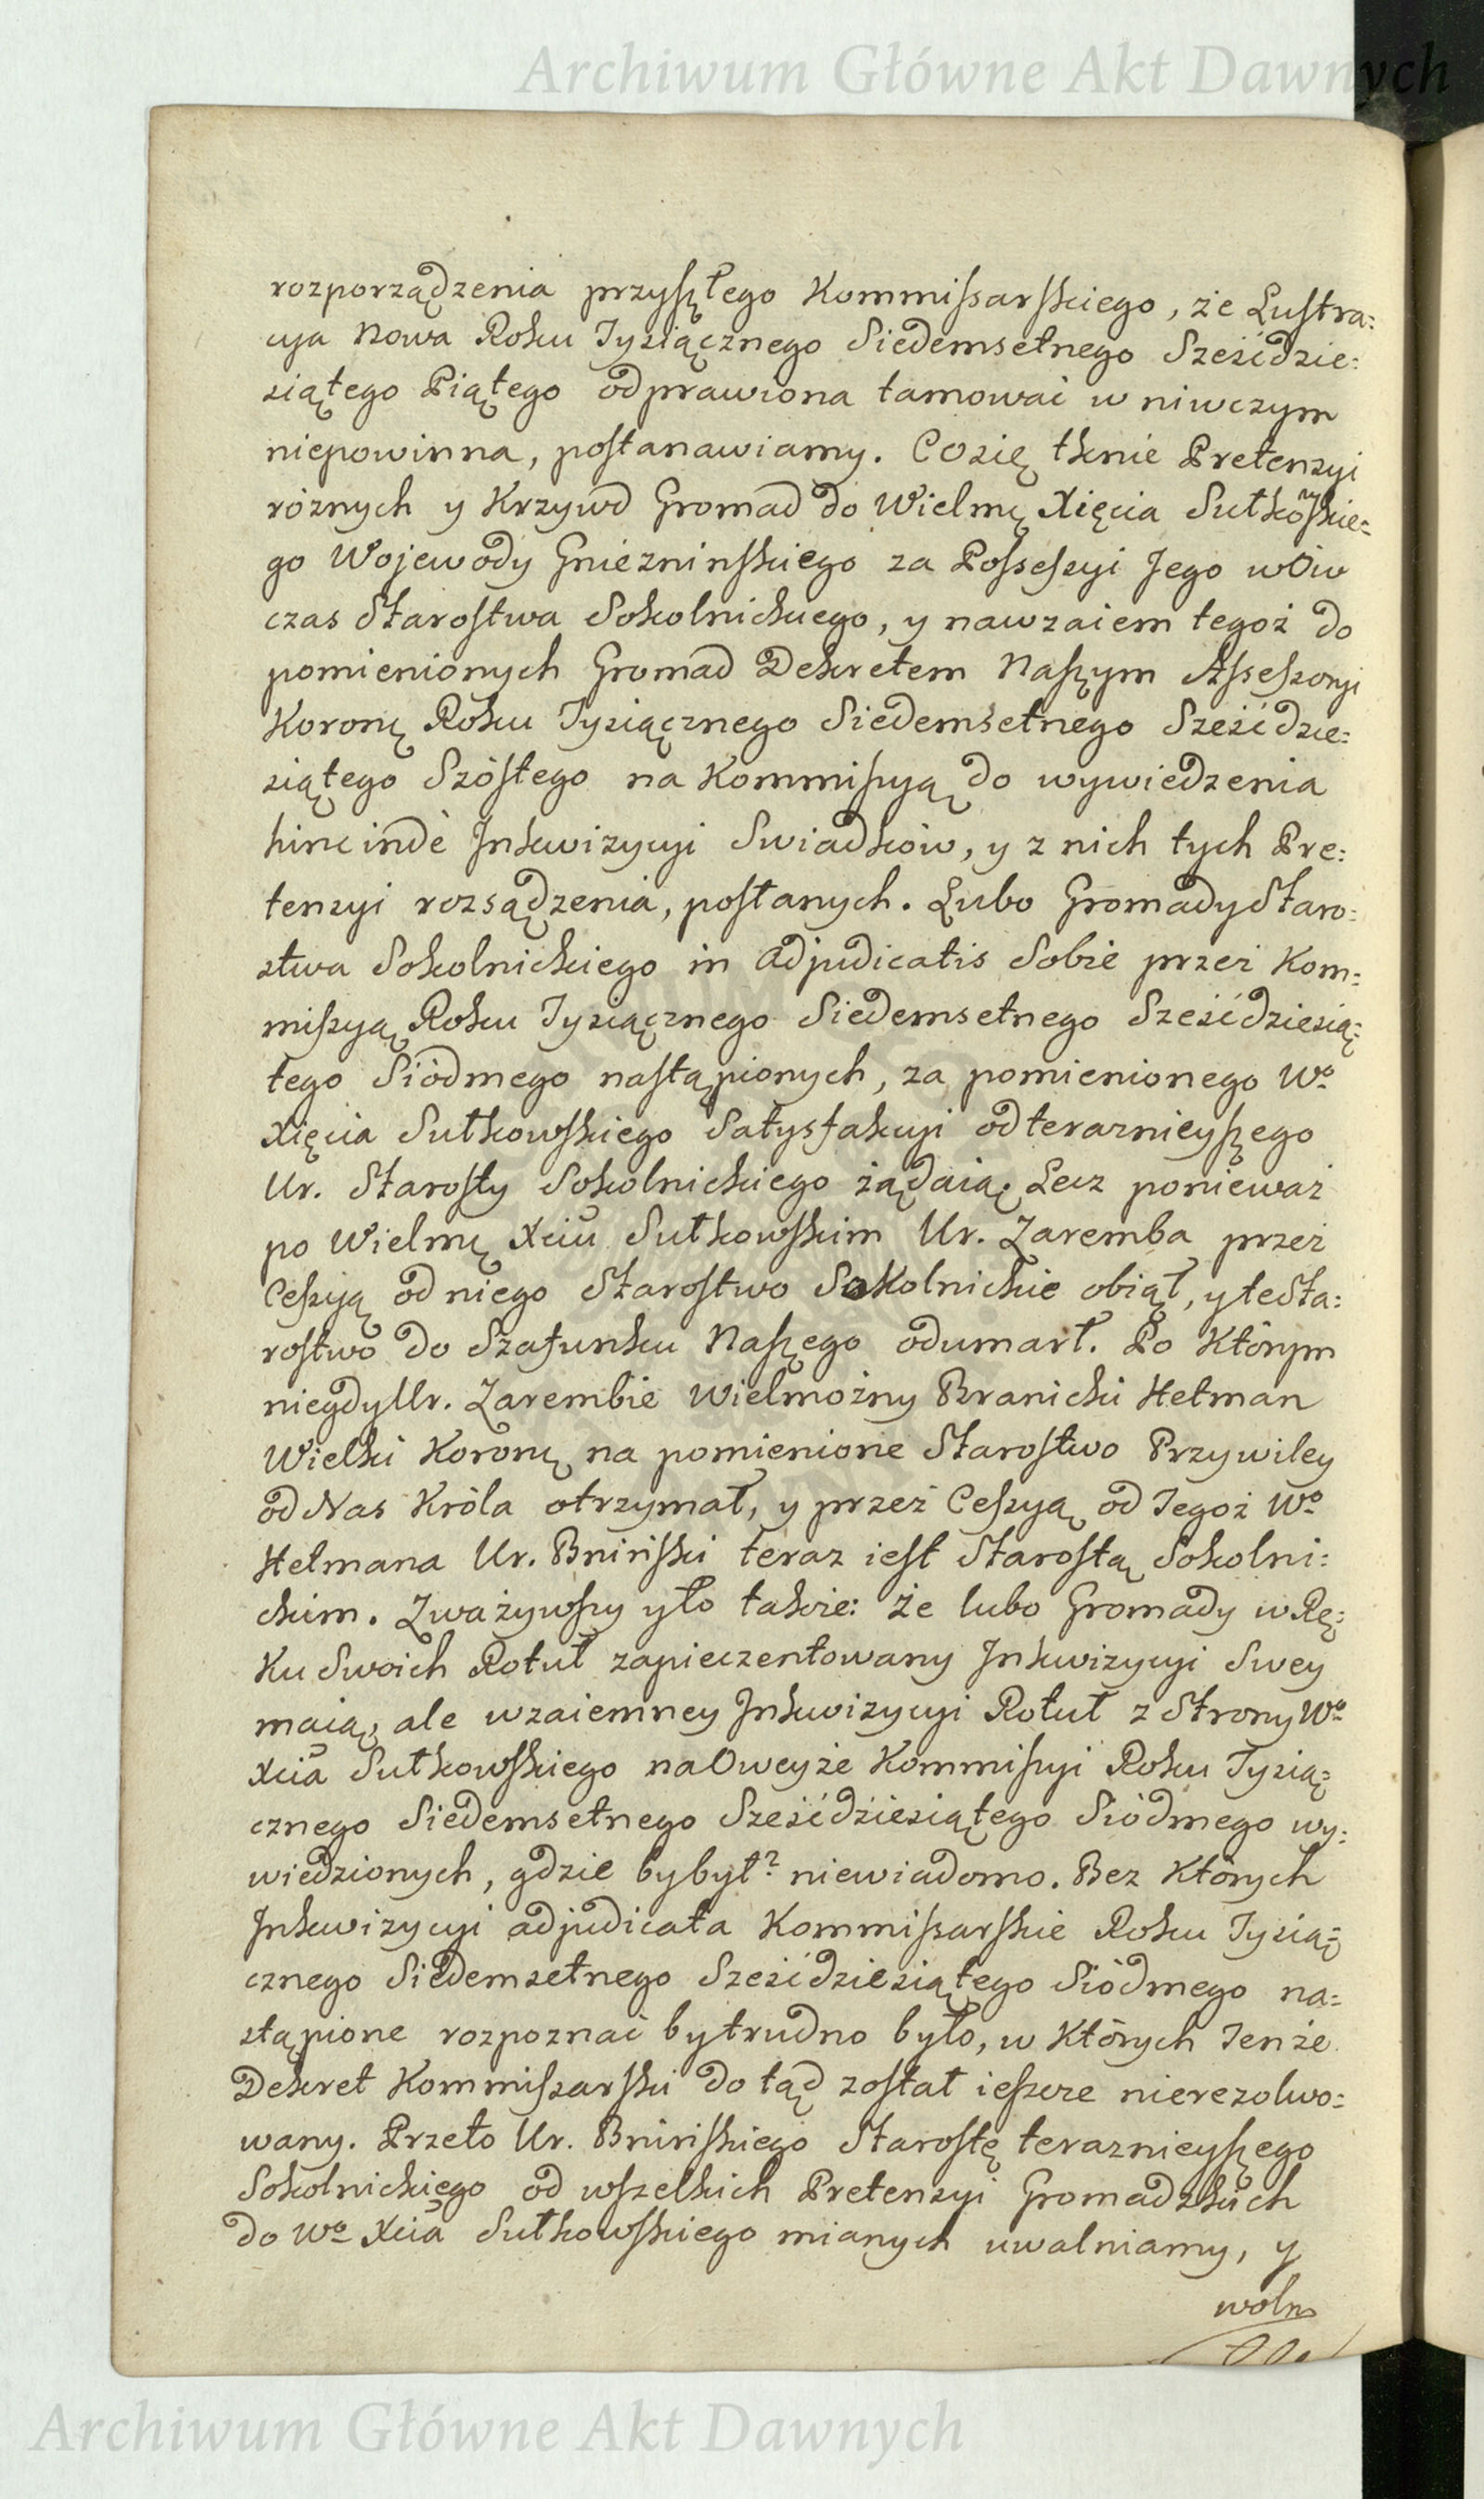 Archiwum Główne Akt Dawnych
rozporządzenia przyszłego Kommissarskiego, że Lustra=
cya Nowa Roku Tysiącznego Siedemsetnego Sześćdzie=
siątego Piątego odprawiona tamować w niwczym
niepowinna, postanawiamy. Co się tknie Pretensyi
róznych y Krzywd Gromad do Wielmę Xięcia Sułkoskie=
go Wojewody Gnieznińskiego za Possessyi Jego wów
czas Starostwa Sokolnickiego, y nawzaiem tegoż do
pomienionych Gromad Dekretem Naszym Assessoryi
Koronę Roku Tysiącznego Siedemsetnego Sześćdzie=
siątego Szóstego na Kommissyą do wywiedzenia
hinc indè Inkwizycyi Swiadków, y z nich tych Pre=
tensyi rozsądzenia, posłanych. Lubo Gromady Staro=
stwa Sokolnickiego in Adjudicatis Sobie przez Kom=
missyą Roku Tysiącznego Siedemsetnego Sześćdziesią=
tego Siódmego nastąpionych, za pomienionego Wo
Xięcia Sułkowskiego Satysfakcyi od teraznieyszego
Ur. Starosty Sokolnickiego żądaią. Lecz ponieważ
po Wielmę Xciu Sułkowskim Ur. Zaremba przez
Cessyą od niego Starostwo Sokolnickie obiął, y te Sta=
rostwo do Szafunku Naszego odumarł. Po Którym
niegdy Ur. Zarembie Wielmożny Branicki Hetman
Wielki Koronę na pomienione Starostwo Przywiley
od Nas Króla otrzymał, y przez Cessyą od Tegoż Wo
Hetmana Ur. Bniński teraz iest Starostą Sokolni=
ckim. Zważywszy y to także: że lubo Gromady w Rę=
Ku Swoich Rotuł zapieczentowany Inkwizycyi Swey
maią, ale wzaiemney Inkwizycyi Rotuł z Strony Wo
Xcia Sułkowskiego na Oweyże Kommissyi Roku Tysią=
cznego Siedemsetnego Sześćdziesiątego Siódmego wy=
wiedzionych, gdzie by był? niewiadomo. Bez Których
Inkwizycyi adjudicata Kommissarskie Roku Tysią=
cznego Siedemsetnego Sześćdziesiątego Siódmego na=
stąpione rozpoznać by trudno było, w Których Tenże
Dekret Kommissarski do tąd został ieszcze nierezolwo=
wany. Przeto Ur. Bnińskiego Starostę teraznieyszego
Sokolnickiego od wszelkich Pretensyi Gromadzkich
do Wo Xcia Sułkowskiego mianych uwalniamy, y
wolno
Archiwum Główne Akt Dawnych